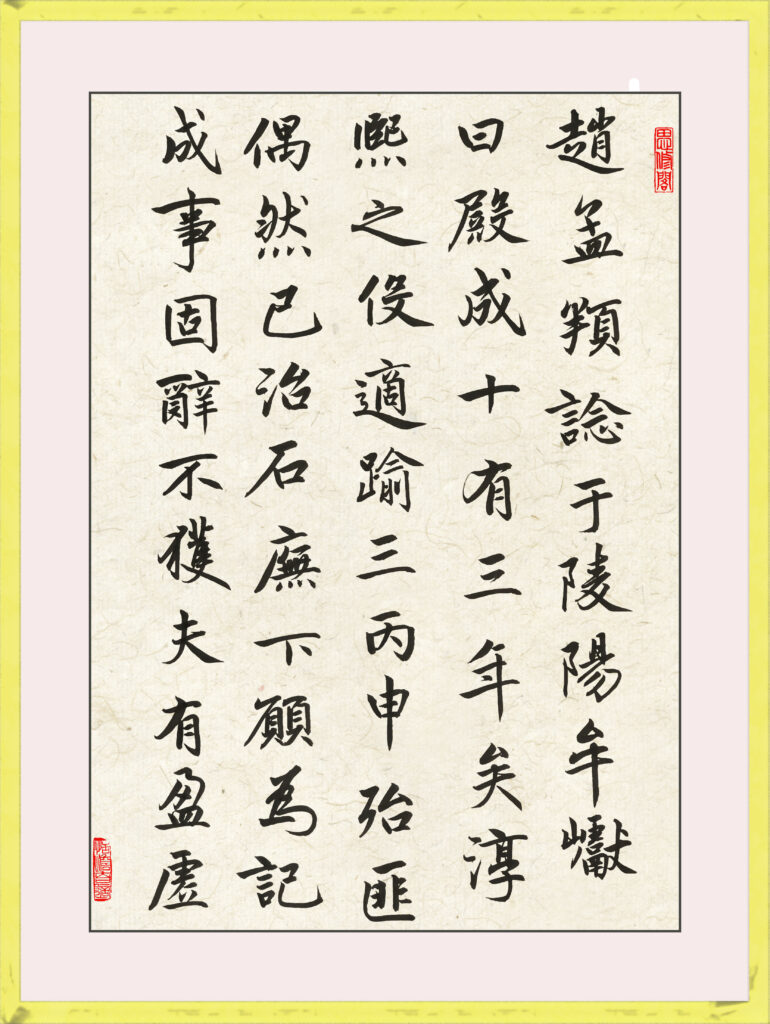 趙孟頫諗于陵陽牟巘
曰殿成十有三年矣淳
熙之役適踰三丙申殆匪
偶然已治石廡下願為記
成事固辭不獲夫有盈虛